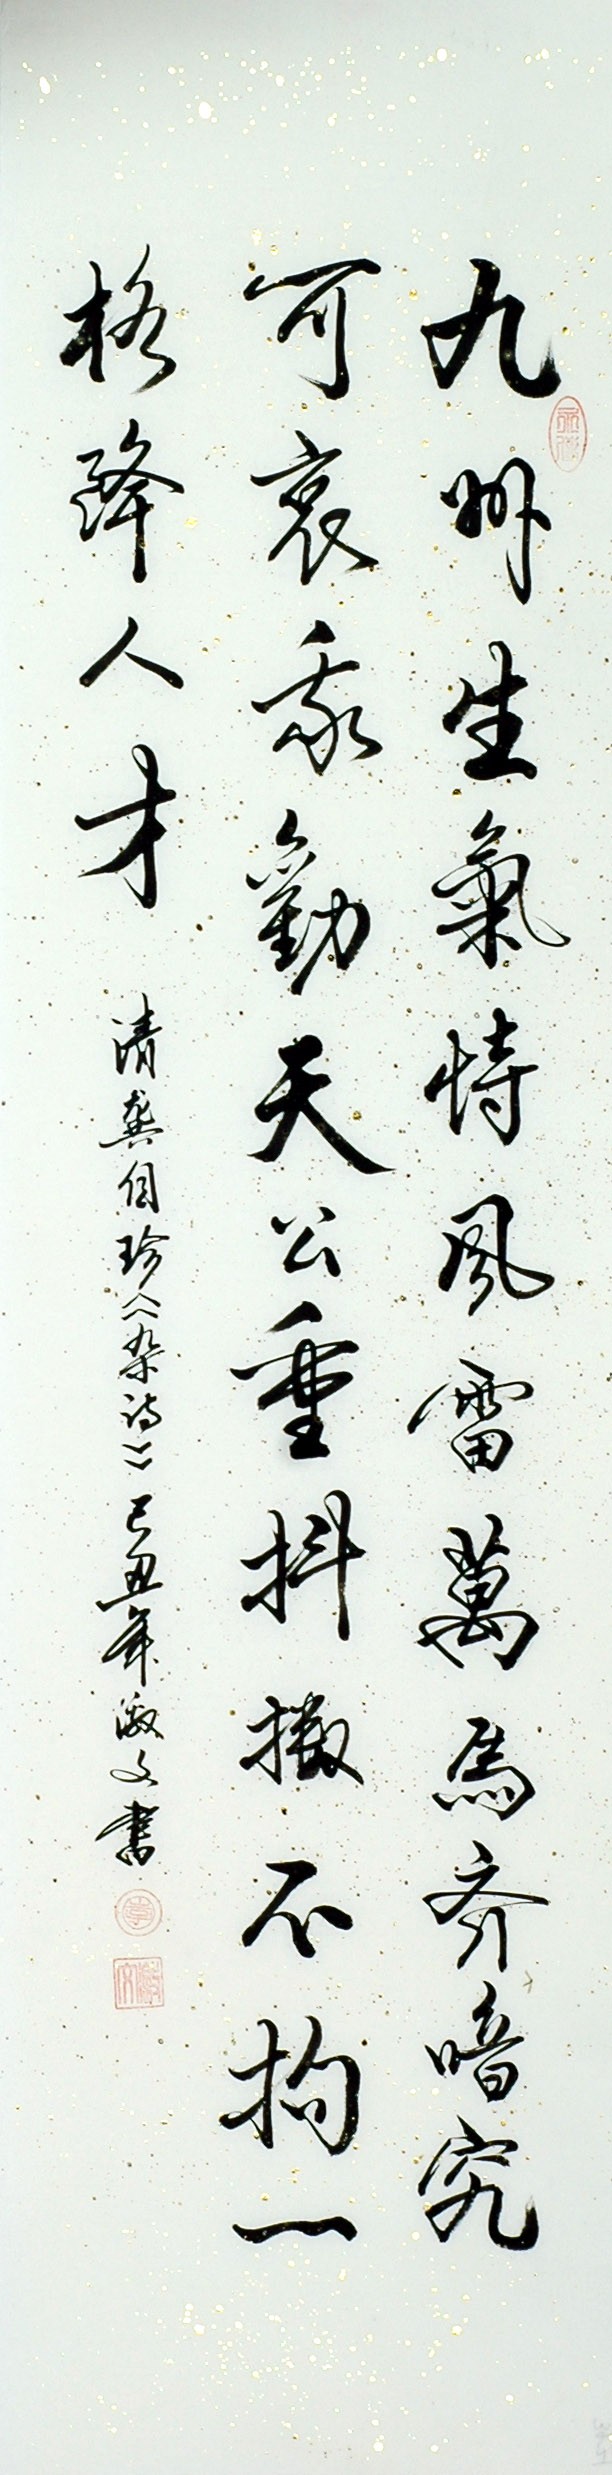 九州生氣恃風雷萬馬齐喑究
可哀我勸天公重抖擞不拘一
格降人才
清龔自珍《杂诗》己丑年澂文書